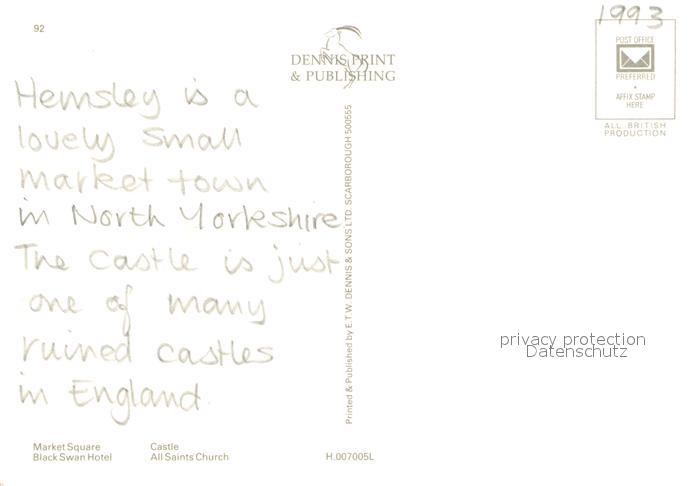 92
1993
DENNIS PRINT
& PUBLISHING
POST OFFICE
PREFERRED
AFFIX STAMP
HERE
ALL BRITISH
PRODUCTION
Hemsley is a
lovely small
market town
in North Yorkshire
The castle is just
one of many
ruined castles
in England.
Printed & Published by E.T.W. DENNIS & SONS LTD. SCARBOROUGH 500555
privacy protection
Datenschutz
Market Square
Black Swan Hotel
Castle
All Saints Church
H.007005L